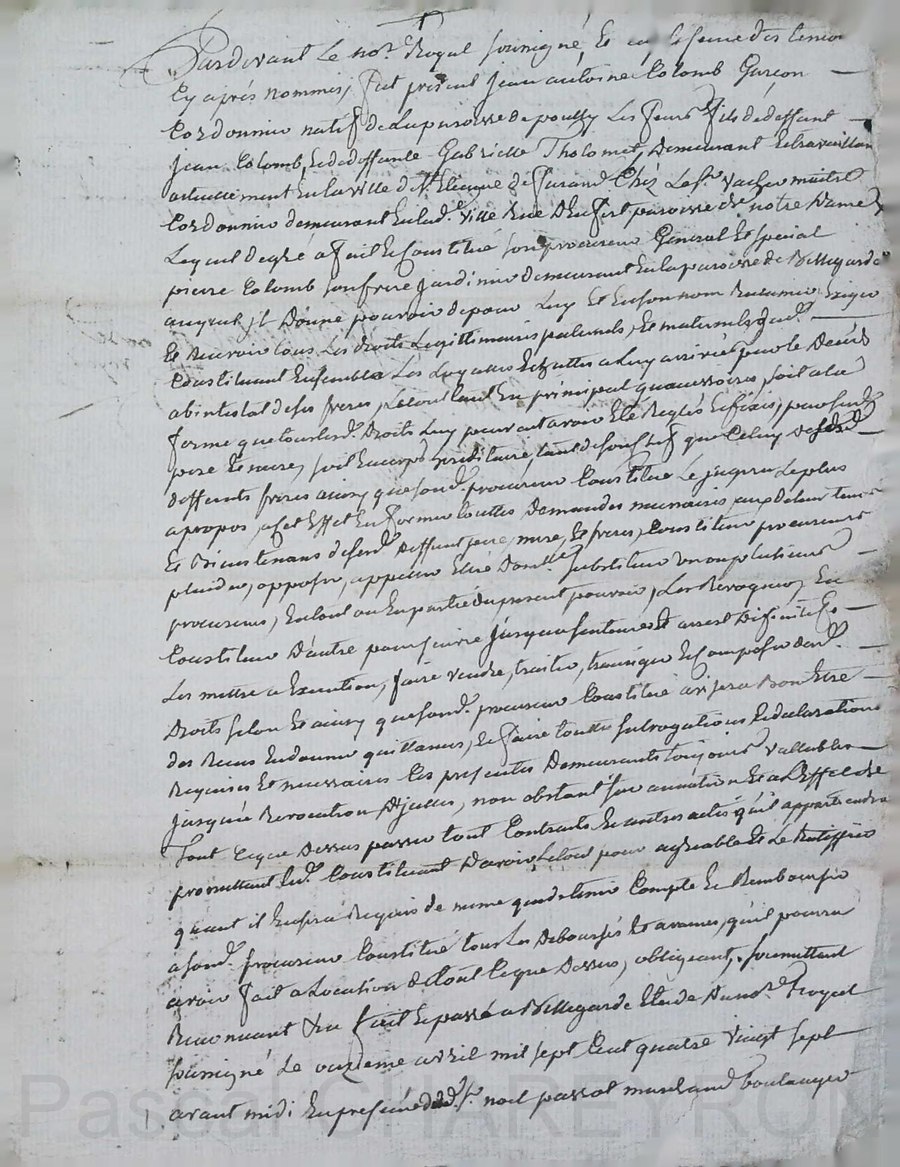 Pardevant Le no.re Royal soussigné, Et en presence des temoins
Cy après nommés, fut present jean antoine Colomb Garçon
Cordonnier natif de La paroisse de pouilly Les feurs fils de deffunt
jean Colomb, & de deffunte Gabrielle Tholomet, Demeurant & travaillant
actuellement En la ville de St. Etienne de furand Chés Le Sr. vacher maitre
Cordonnier demeurant En lad.e ville Rue D'En paroisse de notre Dame
Lequel de gré a fait & Constitué son procureur General Et special
pierre Colomb son frere jardinier demeurant En la paroisse de Bellegarde
auquel il Donne pouvoir de pour Luy Et En son nom Exiger
Et Recevoir tous Les droits Legittimaires paternels, & maternels dud.
Constituant Ensemble Les & a Luy arrivés par le Deces
abintestat de ses freres, Le tout tant En principal qu'accessoires, soit a la
forme que tous Lesd. Droits Luy peuvent avoir Eté Reglés & fixés, par sesd.
pere Et mere, soit En corps hereditaires, tant de son chef que Celuy de sesd.
deffunts freres ainsy que sond. procureur Constitué Le jugera Le plus
apropos, a cet Effet En former touttes demandes necessaires, aux detenteurs
Et Biens tenans de sesd. deffunt pere, mere, & freres, Constituer procureurs
plaider, opposer, appeller Elire Domlle substituer un ou plusieurs
procureurs, En tout ou En partie du present pouvoir, Les Revoquer, En
Constituer D'autre poursuivre jusqua sentence & arrest Definitifs
Les mettre a Execution, faire vendre, traiter, transiger & Composer desd.
Droits selon & ainsy que sond. procureur Constitué avisera Bon Etre
des Recus En donner quittances, & faire touttes subrogations & declarations
Requises Et necessaires Les presentes Demeurants toujours vallables
jusqu'a Revocation D'jcelles, non obstant sur annation Et a L'Effet de
Tout Ceque Dessus passer tout Contracts & autres actes qu'il appartiendra
promettant Led. Constituant D'avoir Le tout pour agreable Et Le Ratiffier
quant il En sera Requis de meme que de tenir Compte & Rembourser
a sond. procureur Constitué tous Les Deboursés Et avances, qu'il pourra
avoir fait a Locasion de tout Ceque Dessus, obligeant, soumettant
Renonceant &a fait & passé a Bellegarde Etude Du no.re Royal
soussigné Le onzieme avril mil sept Cent quatre vingt sept
avant midi En presence de Sr. noel passot marchand boulanger
Pascal CHAREYRON